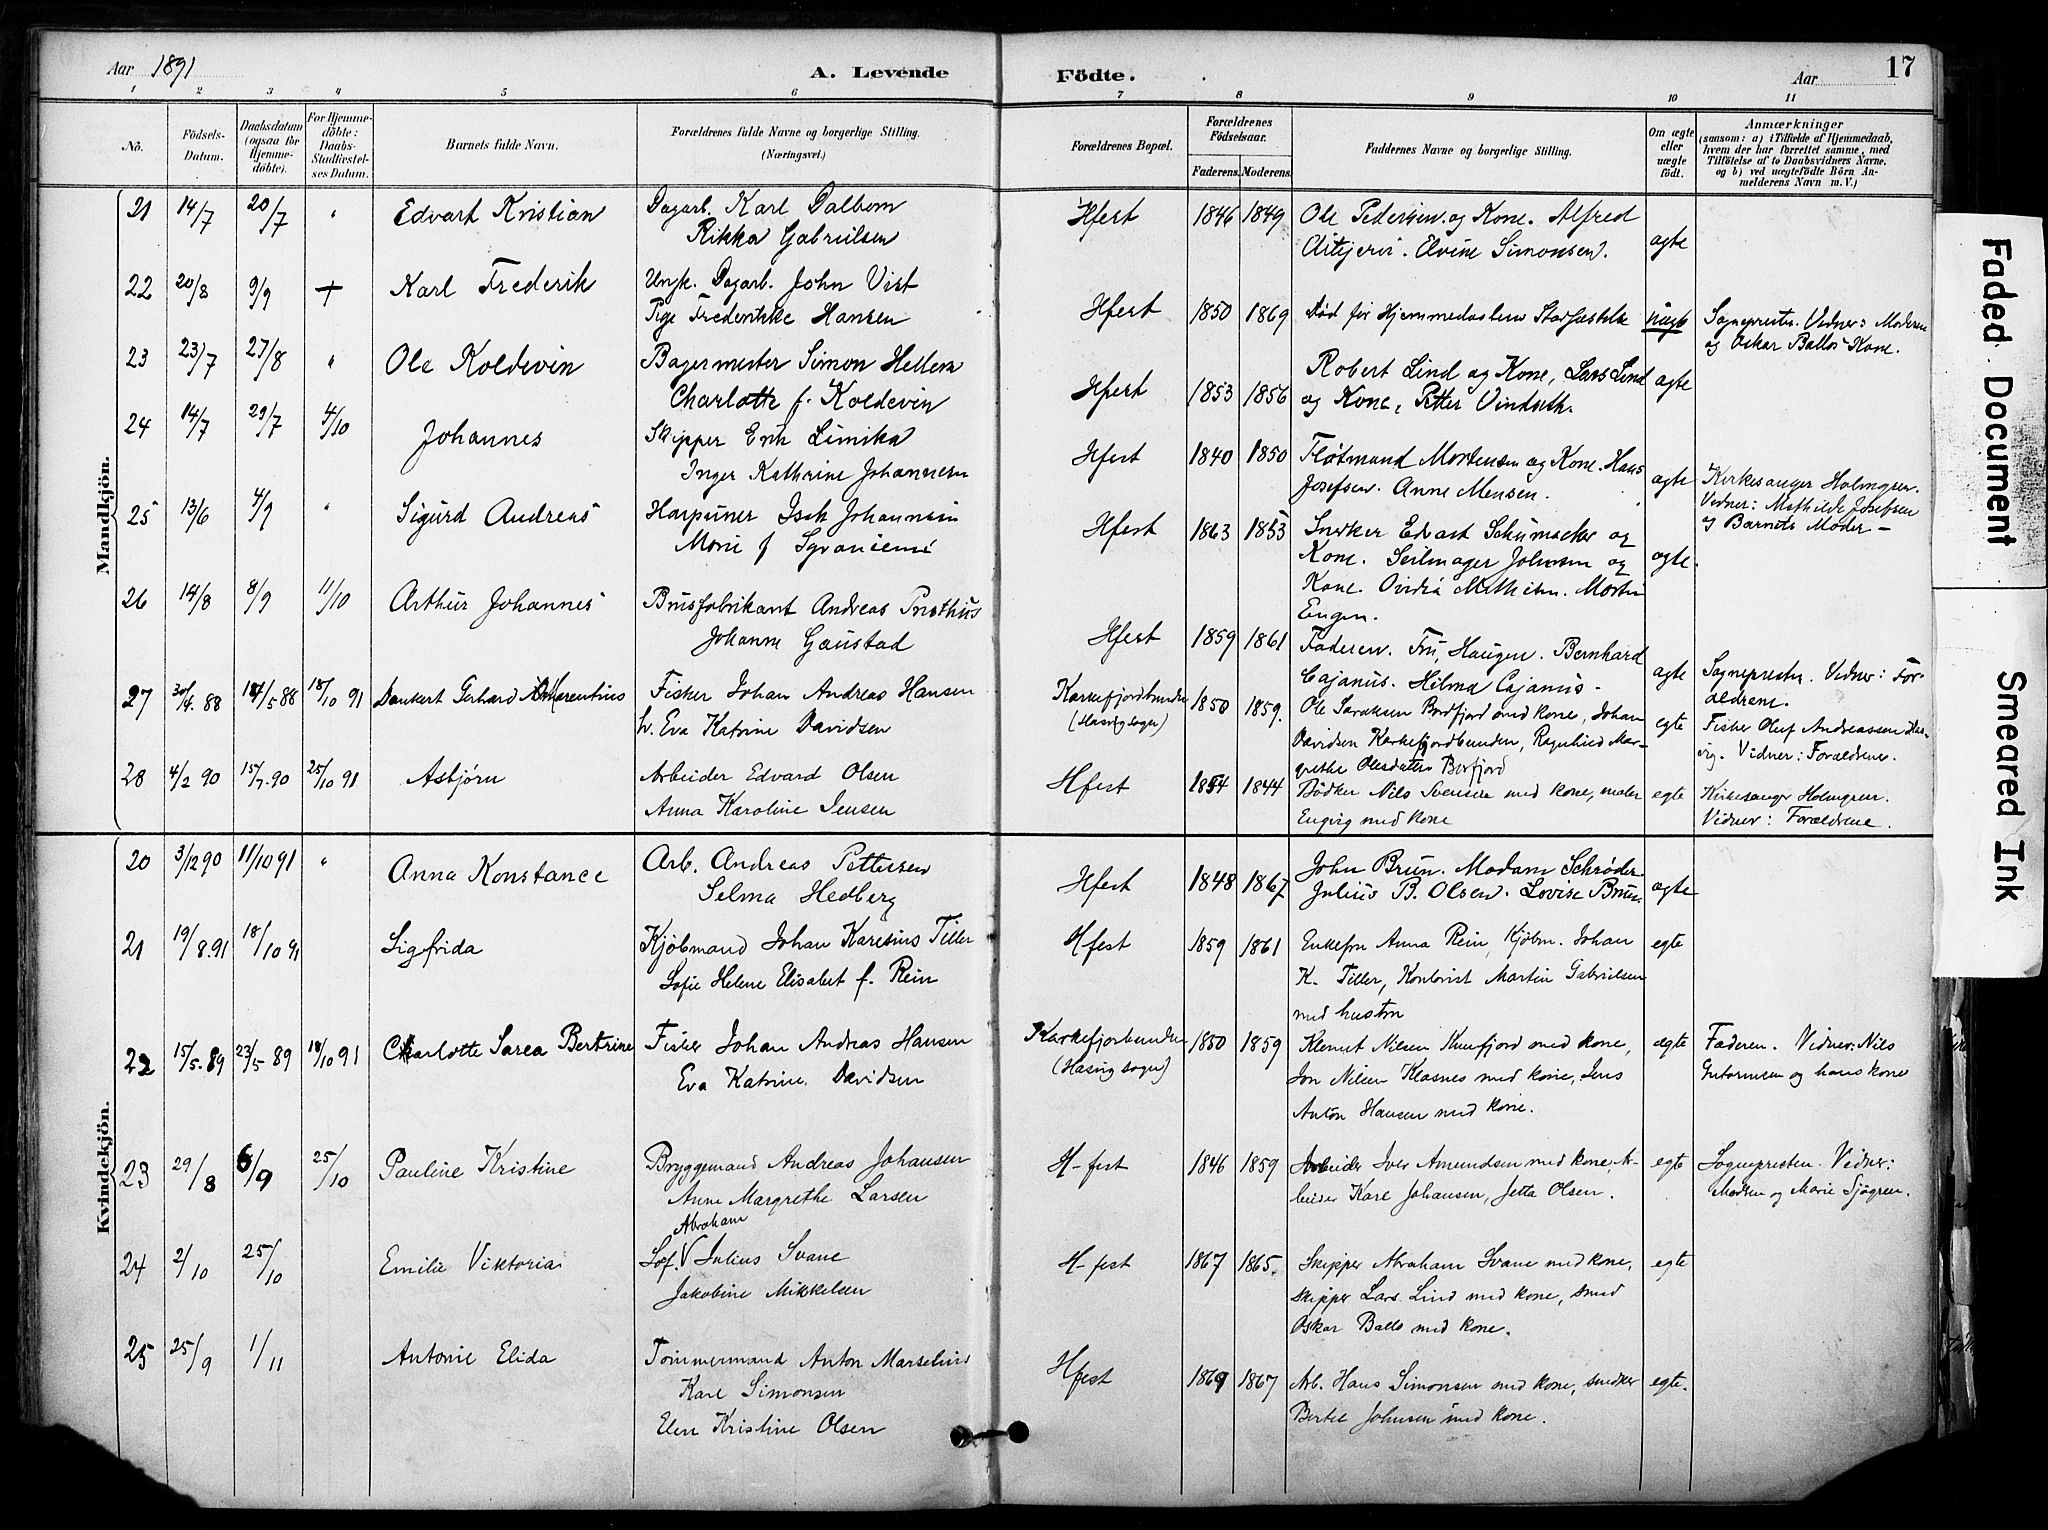 Aar 1891
A. Levende Födte.
Aar
17
1 2 3 4 5 6 7 8 9 10 11
No.
Födsels-Datum.
Daabsdatum (ogsaa for Hjemme-döbte).
For Hjemme-döbte: Daabs-Stadfæstel-ses Datum.
Barnets fulde Navn.
Forældrenes fulde Navne og borgerlige Stilling. (Næringsvei.)
Forældrenes Bopæl.
Forældrenes Födselsaar.
Faderens. Moderens.
Faddernes Navne og borgerlige Stilling.
Om ægte eller uægte födt.
Anmærkninger
(saasom: a) i Tilfælde af Hjemmedaab,
hvem der har forrettet samme, med
Tilföielse af to Daabsvidners Navne.
og b) ved uægtefödte Börn An-
melderens Navn m. V.)
Mandkjön.
21 14/7 20/7 " Edvart Kristian Dagarb. Karl Dalbom Hfest 1846 1849 Ole Pedersen og Kone. Alfred
Rikka Gabrielsen Elvine Simonsen. ægte
22 20/8 9/9 + Karl Frederik Ungk. Dagarb. John Vist
Pige Frederikke Hansen Hfest 1850 1869 Død før Hjemmedaabens Stadfæstelse uægte Sogneprester. Vidner: Moderen
og Oskar Ballos Kone.
23 23/7 27/8 " Ole Koldevin Bagermester Simon Hellem
Charlotte f. Koldevin Hfest 1853 1856 Robert Lind og Kone, Lars Lind ægte
og Kone, Petter Vindseth.
24 14/7 29/7 4/10 Johannes Skipper Erik Limika
Inger Kathrine Johannesen Hfest 1840 1850 Fløtmand Mortensen og Kone. Hans
Josefsen. Anne Mensen. ægte Kirkesanger Holmgren.
Vidner: Mathilde Josefsen
og Barnets Moder -
25 13/6 4/9 " Sigurd Andreas Harpuner Isak Johannesen
f Hfest 1863 1853 Snedker Edvart Schumacker og
Kone. Seilmager Johnsen og ægte.
Kone. Ovidia Mathiesen. Martin
Engen.
26 14/8 8/9 11/10 Arthur Johannes Brusfabrikant Andreas
Johanne Gaustad Hfest 1859 1861 Faderen. Fru Haugen. Bernhard
Cajanus. Hilma Cajanus. ægte Sogneprester. Vidner: For-
ældrene.
27 30/4 88 14/5 88 18/10 91 Dankert Gerhard Fisker Johan Andreas Hansen
h. Eva Katrine Davidsen Karkefjordbunden
(Hasvig sogn) 1850 1859. Ole Saraksen med kone, Johan
Davidsen Karkefjordbunden, Ragnhild Mar-
grethe Olesdatter egte Fisker Oluf Andreassen Has-
vig. Vidner: Forældrene.
28 4/2 90 15/7.90 25/10 91 Asbjørn Arbeider Edvard Olsen
Anna Karoline Jensen Hfest 1854 1844 Bødker Nils Svensen med kone, maler
Engvig med kone egte Kirkesanger Holmgren.
Vidner: Forældrene.
Kvindekjön.
20 3/12 90 11/10 91 " Anna Konstance Arb. Andreas Pettersen
Selma Hedberg Hfest 1848 1867 John Brun. Madam Schrøder
Julius B. Olsen. Lovise Bruun ægte
21 19/8.91 18/10 91 Sigfrida Kjøbmand Johan Karelius Tiller
Sofie Helene Elisabet f. Rein Hfest 1859 1861 Enkefru Anna Rein, Kjøbm. Johan
K. Tiller, Kontorist Martin Gabrielsen
med hustru egte
22 15/5.89 23/5 89 18/10 91 Charlotte Sarea Bertrine Fisker Johan Andreas Hansen
Eva Katrine Davidsen Karkefjorbunden
(Hasvig sogn) 1850 1859 Klemet Nilsen med kone,
Jon Nilsen Klasnes med kone, Jens
Anton Hansen med kone. ægte Faderen. Vidner: Nils
Guttormsen og hans kone
23 29/8 6/9 25/10 Pauline Kristine Bryggemand Andreas Johansen
Anne Margrethe Larsen H-fest 1846 1859 Arbeider Iver Amundsen med kone, Ar-
beider Karl Johansen, Jetta Olsen. egte Sognepresten. Vidner:
Madsen og Marie Sjøgren.
24 2/10 25/10 Emilie Viktoria Abraham
Sof. V Julius Svane
Jakobine Mikkelsen H-fest 1867 1865. Skipper Abraham Svane med kone,
skipper Lars Lind med kone, smed
Oskar Ballo med kone. egte
25 25/9 1/11 Antonie Elida Tømmermand Anton Marselius
Karl Simonsen
Elen Kristine Olsen Hfest 1869 1867 Arb. Hans Simonsen med kone, snedker
Bertel Johnsen med kone. egte.
Faded Document
Smeared Ink